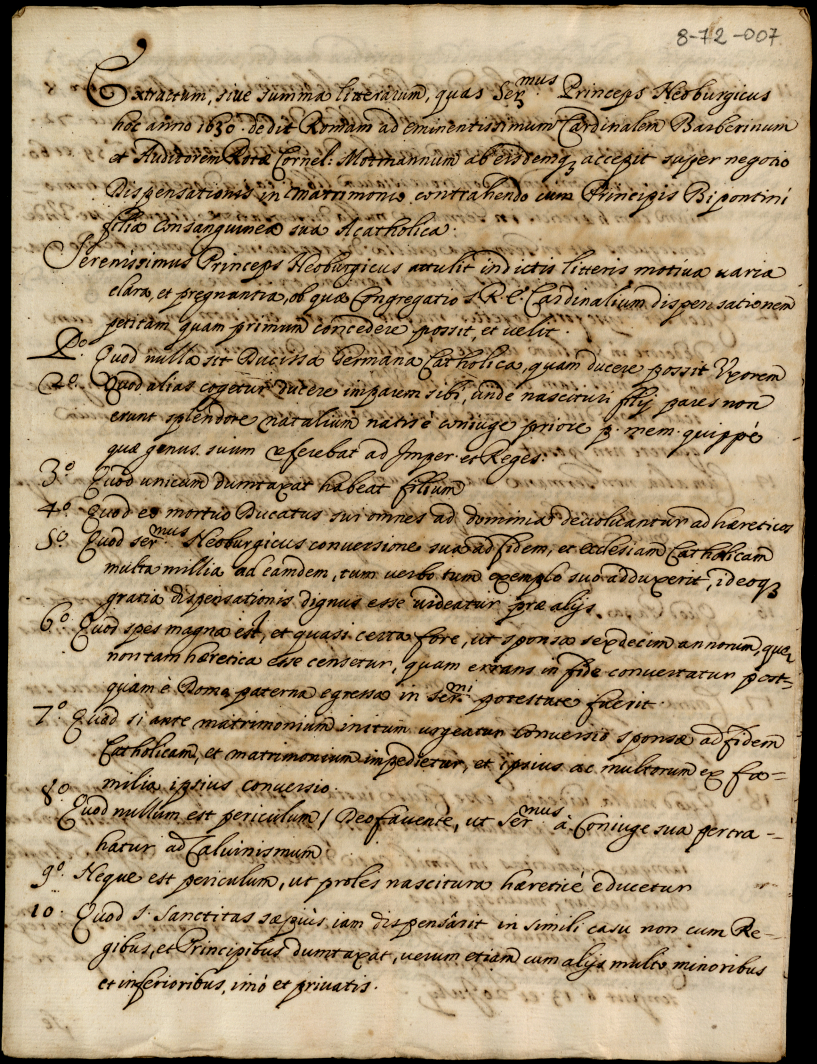 8-72-007
Extractum, sive summa litterarum, quas Ser.mus Princeps Neoburgicus
hoc anno 1630. dedit Romam ad eminentissimum Cardinalem Barberinum
et Auditorem Rotæ Cornel: Motmannum ab eisdemq3 accepit super negotio
Dispensationis in matrimonio contrahendo cum Principis Bipontini
filia consanguinea sua Acatholica.
Serenissimus Princeps Neoburgicus attulit in dictis litteris motiva varia
clara, et pregnantia, ob quæ Congregatio S. R. E. Cardinalium dispensationem
petitam quam primum concedere possit, et velit.
Po. Quod nulla sit Ducissa Germana Catholica, quam ducere possit Uxorem
2o. Quod alias cogetur ducere imparem sibi, unde nascituri filij pares non
erunt splendore natalium natis è coniuge priore p. mem. quippè
quæ genus suum referebat ad Imper. et Reges.
3o Quod unicum dumtaxat habeat filium
4o. Quod eo mortuo Ducatus sui omnes ad dominia devolvantur ad hæreticos
5o. Quod ser.mus Neoburgicus conversione sua ad fidem, et ecclesiam Catholicam
multa millia ad eamdem, tum verbo tum exemplo suo adduxerit, ideoq3
gratia dispensationis dignus esse videatur præ alijs.
6o Quod spes magna est, et quasi certa fore, ut sponsa sexdecim annorum, quæ
non tam hæretica esse censetur, quam errans in fide convertatur post-
quam è Domo paterna egressa in ser.mi potestate fuerit.
7o Quod si ante matrimonium initum urgeatur conversio sponsæ ad fidem
Catholicam, et matrimonium impedietur, et ipsius ac multorum ex fa=
milia ipsius conversio.
8o Quod nullum est periculum / Deo favente, ut Ser.mus à Coniuge sua pertra-
hatur ad Calvinismum
9o. Neque est periculum, ut proles nascitura hæreticè educetur
10. Quod S. Sanctitas sæpius iam dispensârit in simili casu non cum Re-
gibus, et Principibus dumtaxat, verum etiam cum alijs multo minoribus
et inferioribus, imò et privatis.